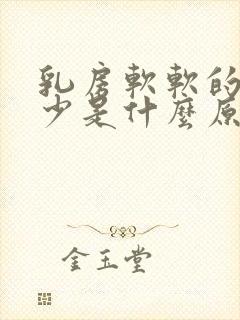 乳房軟軟的
少是什麼原
金玉堂